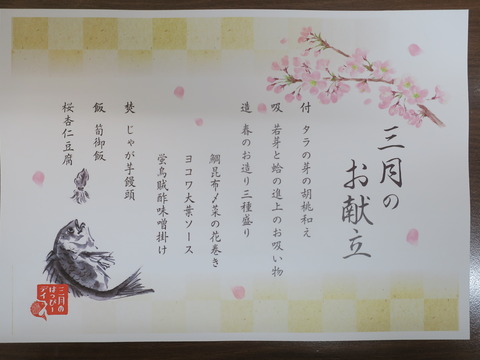 三月の
お献立
付　タラの芽の胡桃和え
吸　若芽と蛤の進上のお吸い物
造　春のお造り三種盛り
鯛昆布〆菜の花巻き
ヨコワ大葉ソース
蛍烏賊酢味噌掛け
焚　じゃが芋饅頭
飯　筍御飯
桜杏仁豆腐
二月の
はっぴー
デイ